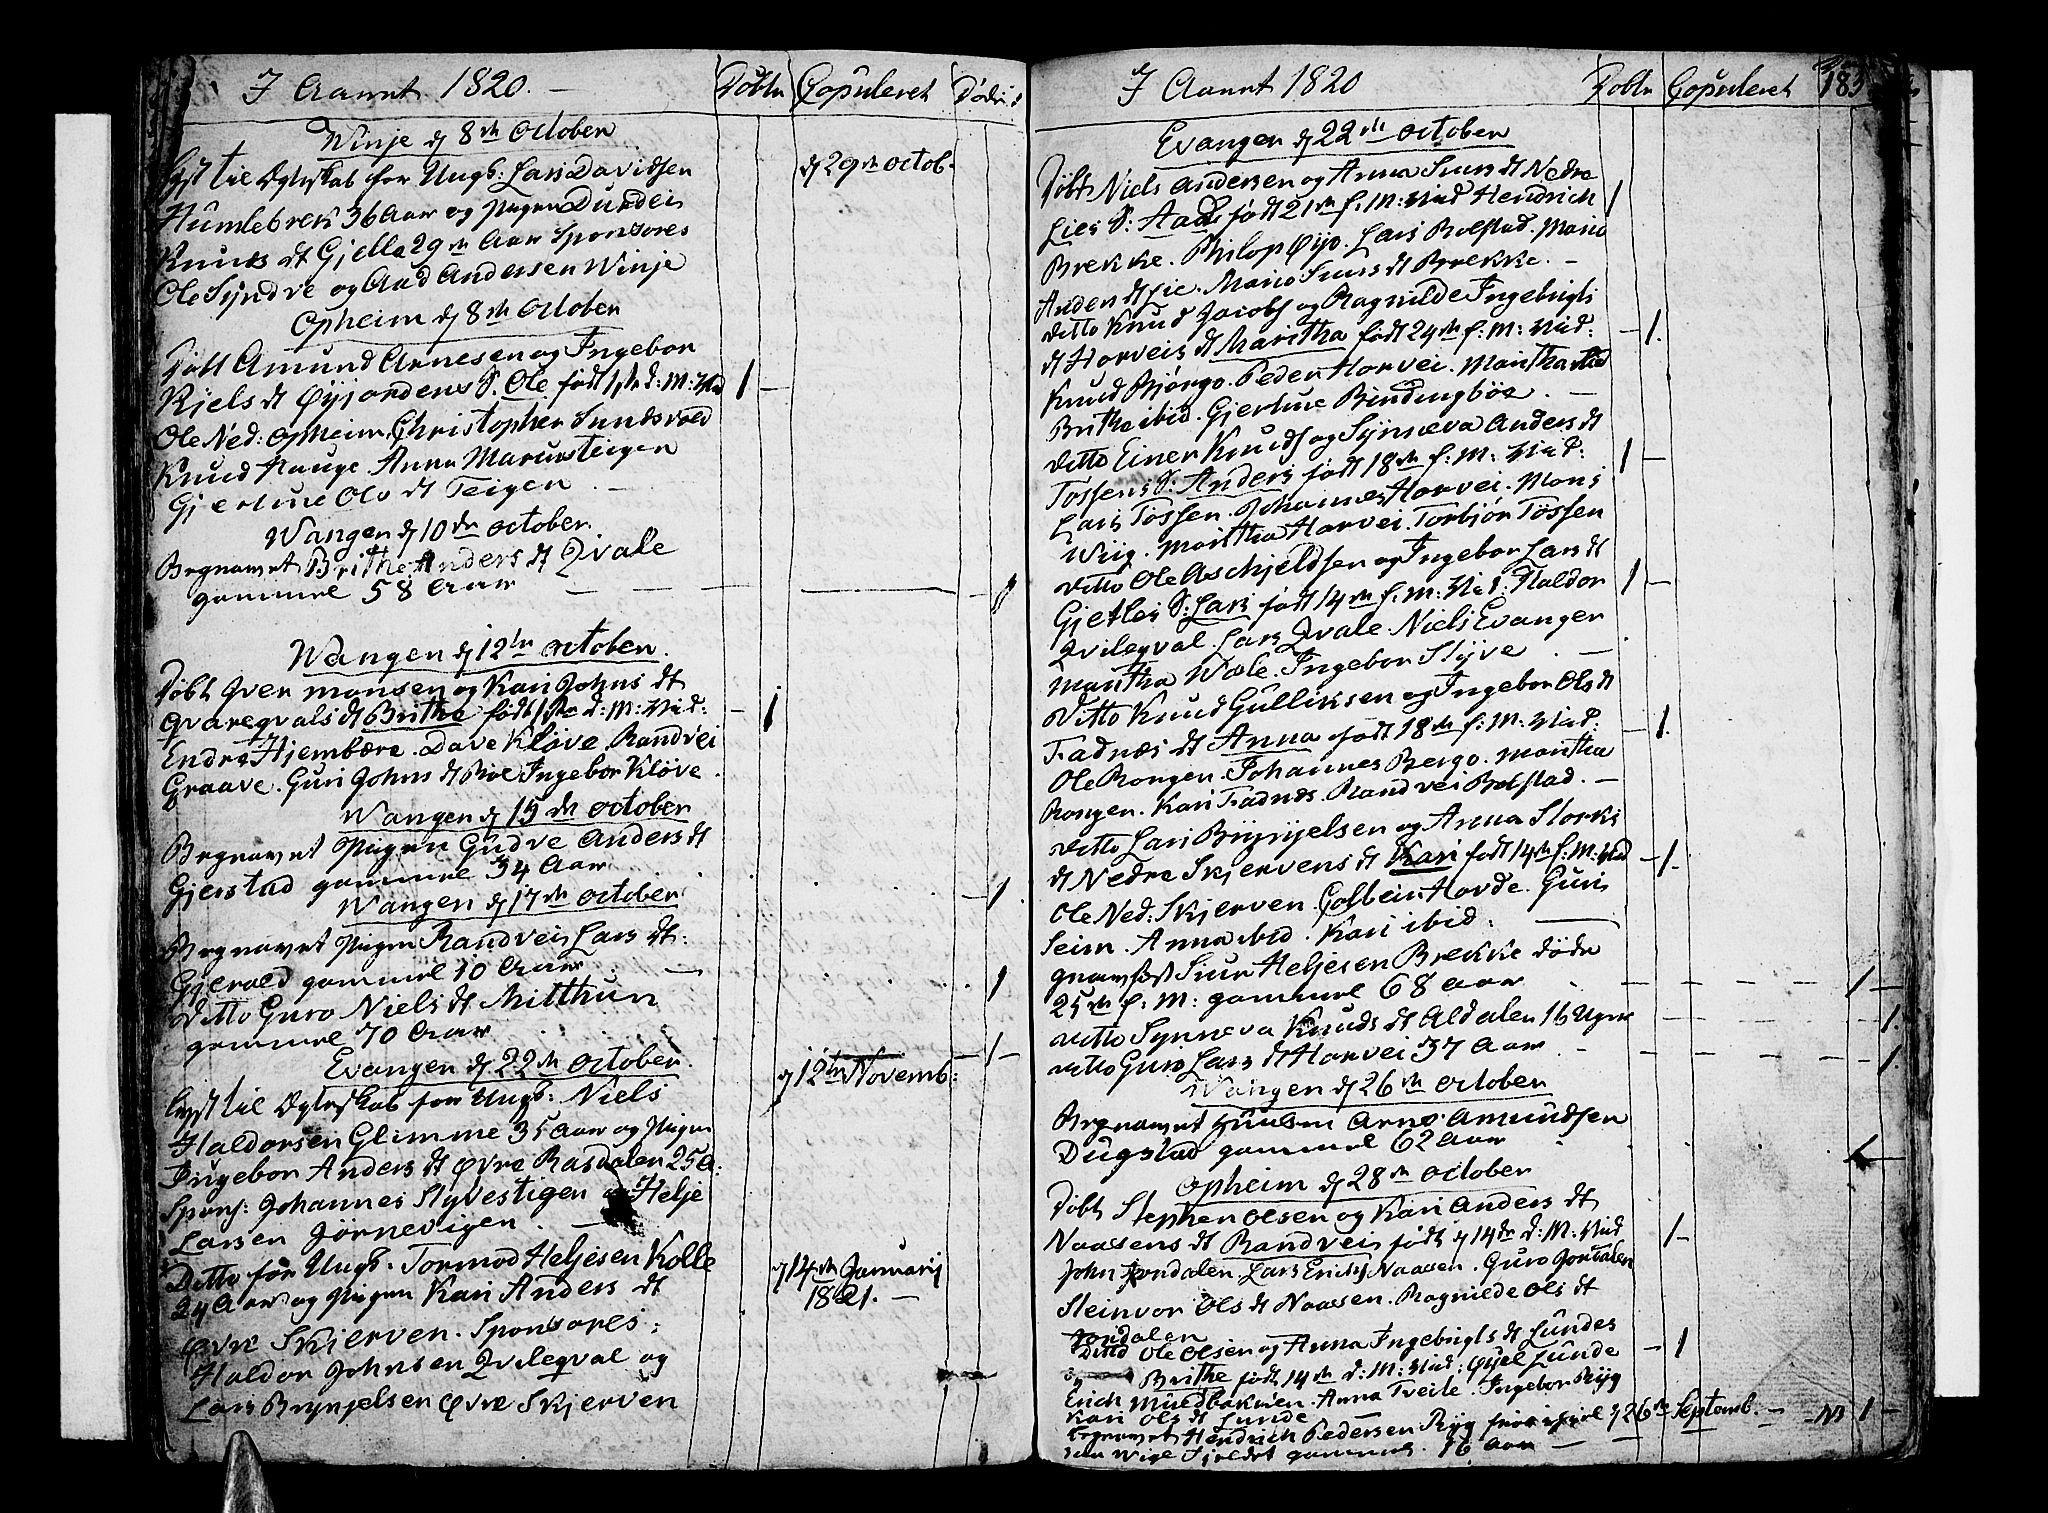 I Aaret 1820. Döbte Copuleret Döde
Winje d 8de October
Lyst til Ægteskab for Ungk: Lars Davidsen d 29de octob.
Humlebrek 36 Aar og Pigen Durdei
Knuds dt Gjelle 29 Aar Sponsores
Ole Syndve og Aad Andersen Winje
Opheim d 8de October
Döbt Amund Arnesen og Ingebor
Kjels dt Öyjordens S. Ole födt 1ste d: M: Vid 1
Ole Ned: Opheim, Christopher Sundsvold
Knud Hauge Anna Teigen
Gjertrue Ols dt Teigen
Wangen d 10de october
Begravet Brithe Anders dt Qvale
gammel 58 Aar 1
Wangen d 12te october.
Döbt Iver Monsen og Kari Johns dt
Qvareqvals dt Brithe födt d: M: Vid: 1
Endre Hjembære. Dave Klöve. Randvei
Graave. Guri Johns dt Böe Ingebor Klöve.
Wangen d 15de october
Begravet Pigen Gudve Anders dt
Gjerstad gammel 34 Aar 1
Wangen d 17de october
Begravet Pigen Randvei Lars dt
Gjerald gammel 10 Aar 1
Ditto Guro Niels dt Mitthun
gammel 70 Aar 1
Evangen d 22de october.
Lyst til Ægteskab for Ungk: Niels d 12te Novemb:
Haldorsen Glimme 35 Aar og Pigen
Ingebor Anders dt Övre Rasdalen 25 A:
Spons: Johannes Styvestigen og Helje
Larsen Jörnevigen
Ditto for Ungk. Tormod Heljesen Kolle d 14de Januarij
24 Aar og Pigen Kari Anders dt 1821.
Övre Skjerven. Sponsores:
Haldor Johnsen Qvileqval og
Lars Brynjelsen Övre Skjerven
I Aaret 1820 Döbte Copuleret 183
Evangen d 22de october
Döbt Niels Andersen og Anna Siurs dt Nedre
Lies S: Aad födt 21de f: M: Vid Hendrich 1
Brekke. Philop Öye. Lars Bolstad. Mari
Anders dt Lie. Mari Siurs dt Brekke.
Ditto Knud Jacobs og Ragnilde Ingebrigts
dt Horveis dt Maritha födt 24de f: M: Vid: 1.
Knud Björgo. Peder Horvei. Maritha ibid
Brithe ibid. Gjertrue Bindingböe.
Ditto Einer Knuds og Synneva Anders dt
Tössens S: Anders födt 18de f: M: Vid: 1
Lars Tössen. Johannes Horvei. Mons
Wiig. Maritha Horvei. Torbjör Tössen
Ditto Ole Aschjeldsen og Ingebor Lars dt
Gjetles S: Lars födt 14de f: M: Vid: Haldor 1
Qvileqval. Lars Qvale. Niels Evanger
Maritha Wæle. Ingebor Styve.
Ditto Knud Gulliksen og Ingebor Ols dt
Fadnæs dt Anna födt 18de f: M: Vid: 1.
Ole Rongen. Johannes Bergo. Maritha
Rongen. Kari Fadnæs. Randvei Bolstad.
Ditto Lars Brynjelsen og Anna Storks
dt Nedre Skjervens dt Kari födt 14de f: M: Vid 1.
Ole Ned: Skjerven. Golbein Horde. Guri
Seim. Anna ibid. Kari ibid.
gravfæst Siur Heljesen Brekke döde
25de f: M: gammel 68 Aar 1
Ditto Synneva Knuds dt Aldalen 16 Uger 1.
Ditto Guro Lars dt Horvei 37 Aar. 1.
Wangen d 26de october
Begravet Arne Amundsen
Dugstad gammel 62 Aar 1
Opheim d 28de october
Döbt Stephen Olsen og Kari Anders dt
Naasens dt Randvei födt d 14de d: M: Vid 1
John Jordalen. Lars Erichs Naasen. Guro Jordalen
Steinvor Ols dt Naasen. Ragnilde Ols dt
Jordalen
Ditto Ole Olsen og Anna Ingebrigts dt Lundes 1
Brithe födt 14de d: M: Vid: Lunde
Erich Muldbakken. Anna Tveite. Ingebor Ryg
Kari Ols dt Lunde
Begravet Hendrich Pedersen Ryg d 26de Septemb. 1
Fjeldet gammel 16 Aar